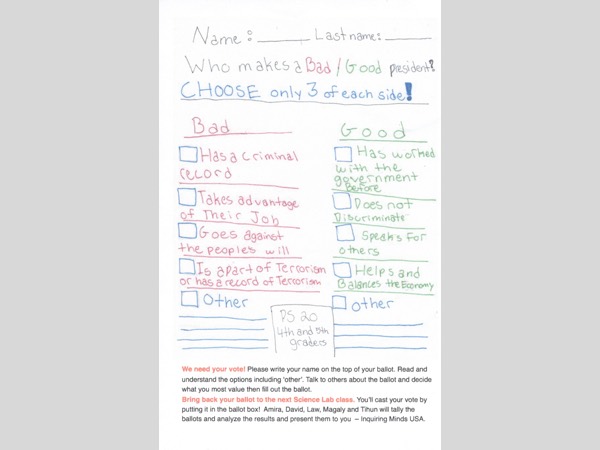 Name: ______ Last name: ______
Who makes a Bad / Good president?
CHOOSE only 3 of each side!
Bad
Has a criminal
record
Takes advantage
of Their Job
Goes against
the peoples will
Is a part of Terrorism
or has a record of Terrorism
Other
Good
Has worked
with the
government
Before
Does not
Discriminate
Speaks for
others
Helps and
Balances the Economy
other
PS 20
4th and 5th
graders
We need your vote! Please write your name on the top of your ballot. Read and
understand the options including 'other'. Talk to others about the ballot and decide
what you most value then fill out the ballot.
Bring back your ballot to the next Science Lab class. You'll cast your vote by
putting it in the ballot box! Amira, David, Law, Magaly and Tihun will tally the
ballots and analyze the results and present them to you – Inquiring Minds USA.